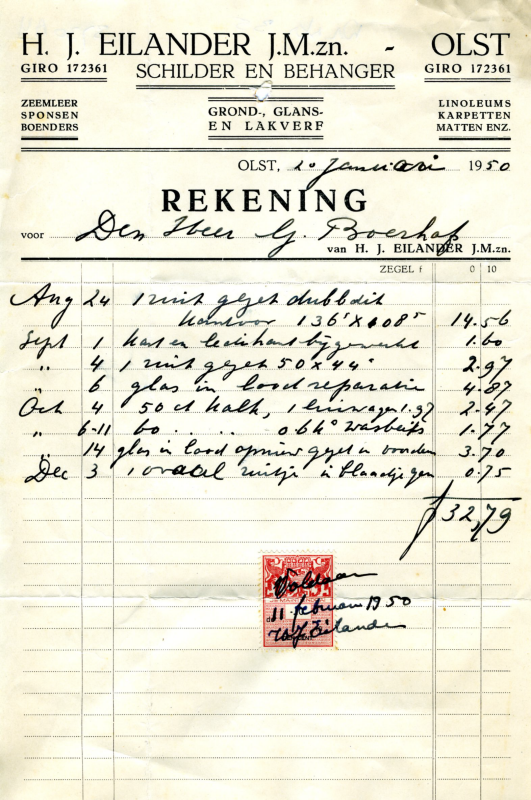 H. J. EILANDER J.M.zn. - OLST
GIRO 172361 SCHILDER EN BEHANGER GIRO 172361
ZEEMLEER
SPONSEN
BOENDERS
GROND-, GLANS-
EN LAKVERF
LINOLEUMS
KARPETTEN
MATTEN ENZ.
OLST, 20 Januari 1950
REKENING
voor Den Heer G. Boerhof
van H. J. EILANDER J.M.zn.
ZEGEL f 0 10
Aug 24 1 ruit gezet dubbdik
kantoor 136⁵ x 108⁵ 14.56
Sept 1 kast en bijgewerkt 1.60
„ 4 1 ruit gezet 50 x 44⁰ 2.97
„ 6 glas in lood reparatie 4.87
Oct 4 50 ct kalk, 1 luiwagen 1.97 2.47
„ 6-11 60 .. .. 1.77
„ 14 glas in lood opnieuw gezet in 3.70
Dec 3 1 ovaal ruitje in 0.75
f 32,79
Voldaan
11 februari 1950
HJ Eilander